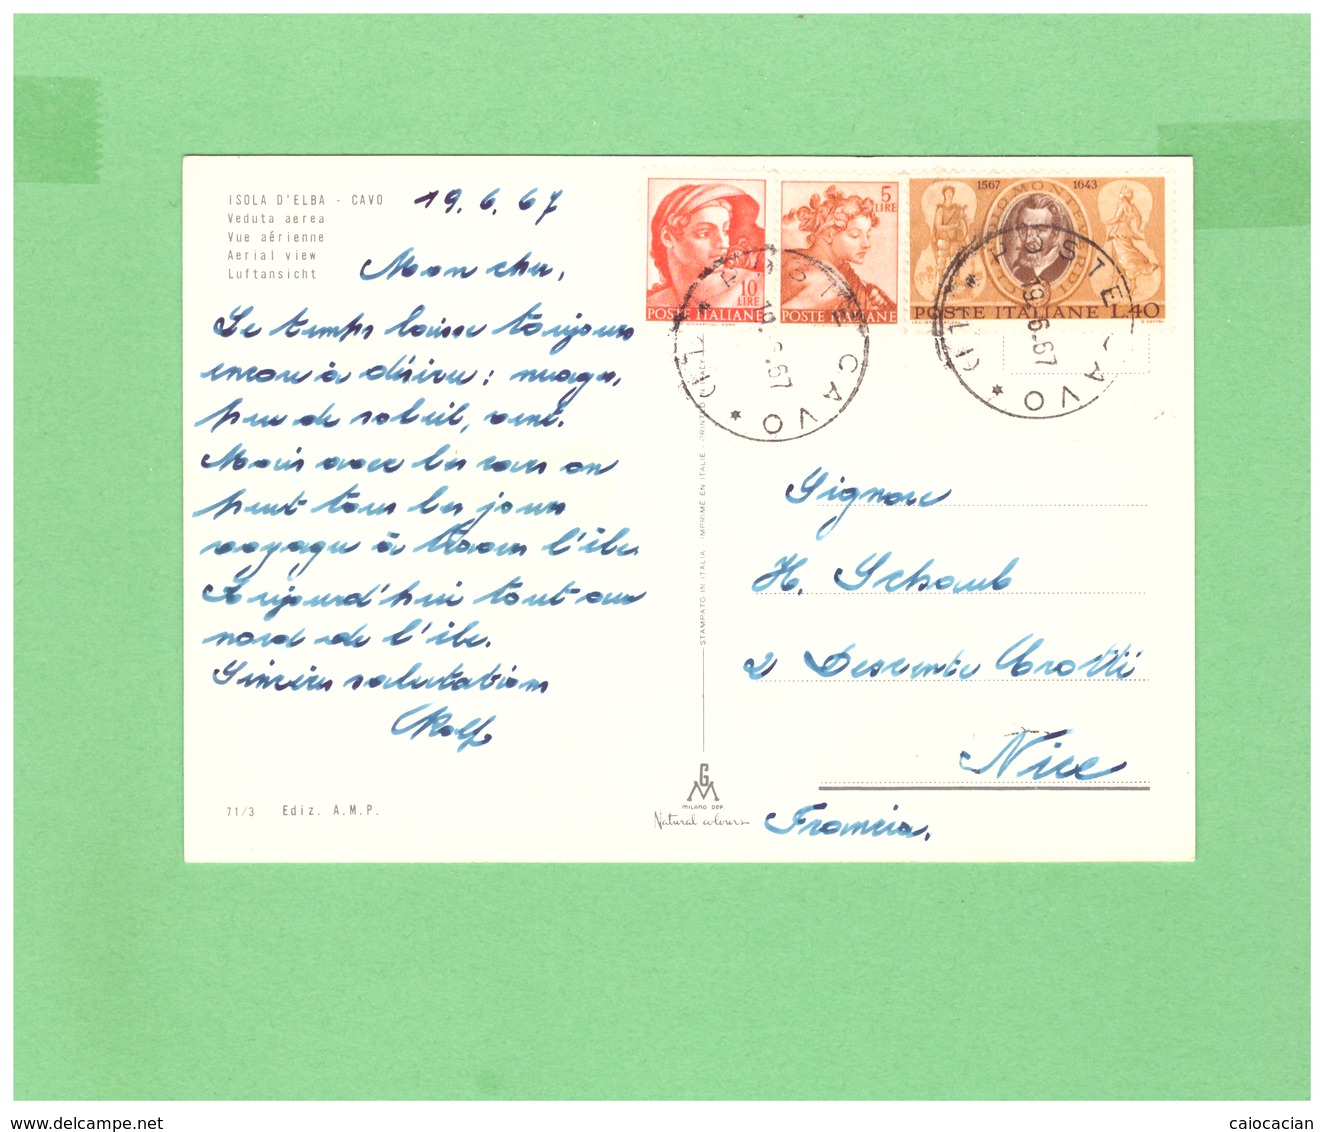 ISOLA D'ELBA - CAVO
Veduta aerea
Vue aérienne
Aerial view
Luftansicht
19. 6. 67
Mon cher,
Le temps laisse toujours
encore à désirer: nuages,
peu de soleil, vent.
Mais avec les cars on
peut tous les jours
voyager à travers l'île.
Aujourd'hui tout au
nord de l'île.
Sincères salutations
Rolf
71/3 Ediz. A.M.P.
10
LIRE
POSTE ITALIANE
5
LIRE
POSTE ITALIANE
1567 1643
POSTE ITALIANE L.40
POSTE CAVO
19.6.67
POSTE CAVO
19.6.67
STAMPATO IN ITALIA - IMPRIMÉ EN ITALIE - PRINTED IN ITALY
Signore
H. Schaub
2 Descente Crotti
Nice
Francia.
G M
MILANO DEP.
Natural colours
www.delcampe.net
caiocacian